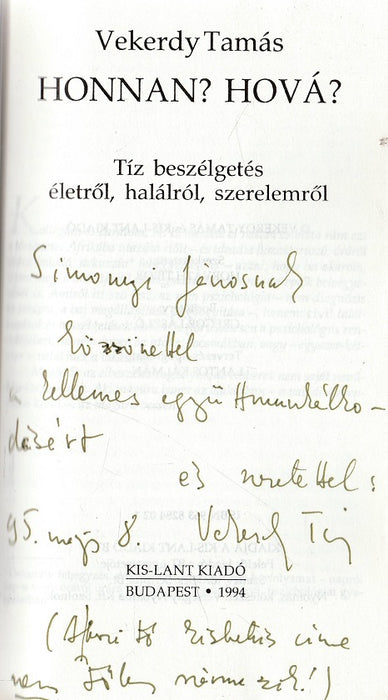 Vekerdy Tamás
HONNAN? HOVÁ?
Tíz beszélgetés
életről, halálról, szerelemről
Simonyi Jánosnak
köszönettel
a kellemes együttmunkálko-
dásért
és szeretettel:
95. máj. 8. Vekerdy T
KIS-LANT KIADÓ
BUDAPEST • 1994
kisbetűs címe
nem tőlem származik!)